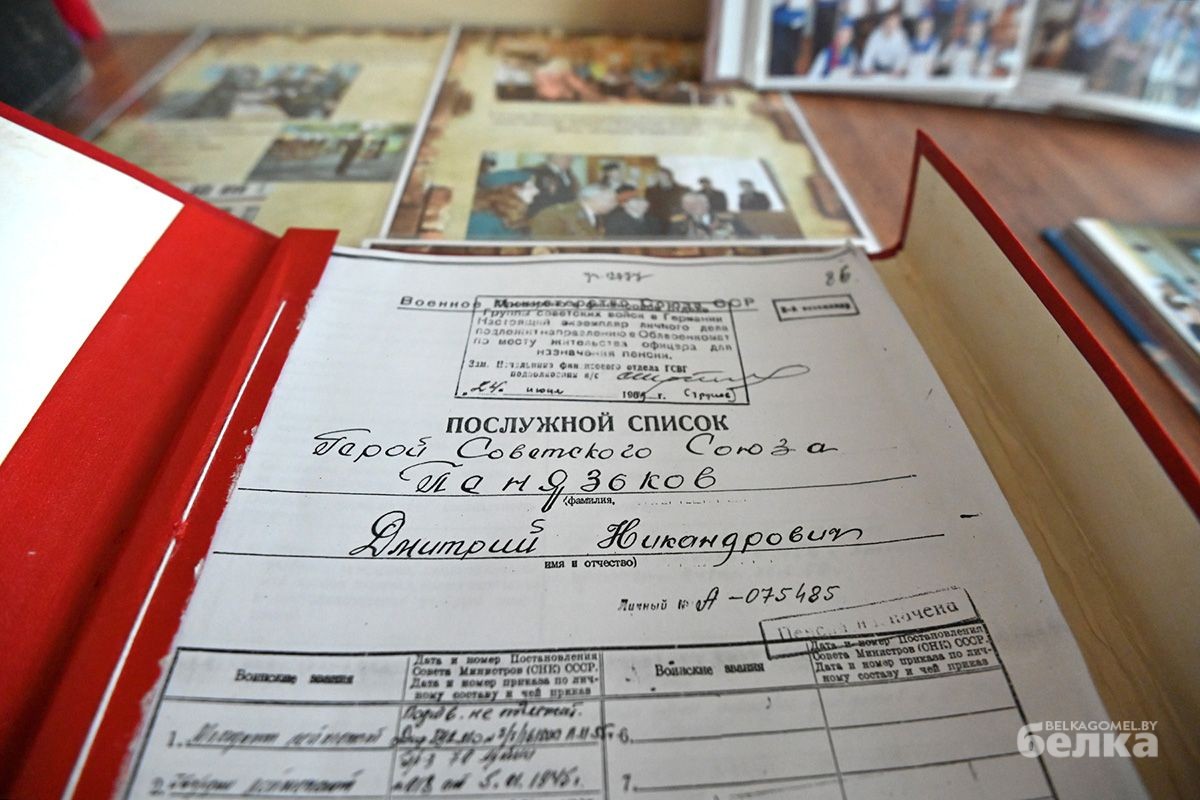 86.
Военное Министерство Союза ССР
2-й экземпляр
Группы советских войск в Германии
Настоящий экземпляр личного дела
подложит направлению в Облвоенкомат
по месту жительства офицера для
назначения пенсии.
Зам. Начальника финансового отдела ГСВГ
подполковник а/с
"24" июля 196 г.
ПОСЛУЖНОЙ СПИСОК
Герой Советского Союза
Панязьков
(фамилия,
Дмитрий Никандрович
имя и отчество)
Личный № А-075485
Пенсия назначена
Воинские звания
Дата и номер Постановления
Совета Министров (СНК) СССР.
Дата и номер приказа по лич-
ному составу и чей приказ
Воинские звания
Дата и номер Постановления
Совета Министров (СНК) СССР.
Дата и номер приказа по лич-
ному составу и чей приказ
1.
6.
2.
018 от 5.11.1945г.
7.
BELKAGOMEL.BY
белка